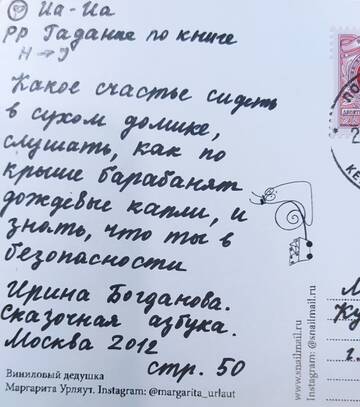 Иа-Иа
РР Гадание по книге
Н → У
Какое счастье сидеть
в сухом домике,
слушать, как по
крыше барабанят
дождевые капли, и
знать, что ты в
безопасности
Ирина Богданова.
Сказочная азбука.
Москва 2012
стр. 50
Виниловый дедушка
Маргарита Урляут. Instagram: @margarita_urlaut
www.snailmail.ru
Instagram: @snailmail.ru